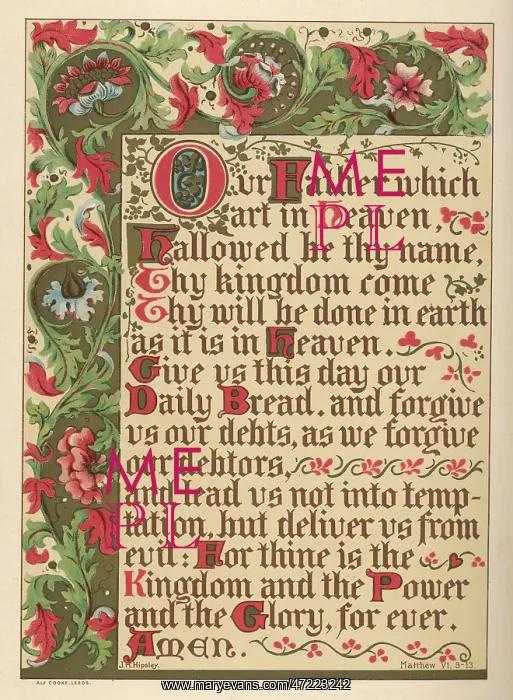 Our Father which
art in Heaven,
Hallowed be thy name,
Thy kingdom come
Thy will be done in earth
as it is in Heaven.
Give us this day our
Daily Bread. and forgive
us our debts, as we forgive
our debtors,
And lead us not into temp-
tation, but deliver us from
evil: For thine is the
Kingdom and the Power
and the Glory, for ever.
Amen.
J.H. Hipsley.
Matthew VI, 9-13.
Alf Cooke, Leeds.
ME
PL
ME
PL
www.maryevans.com/47223242